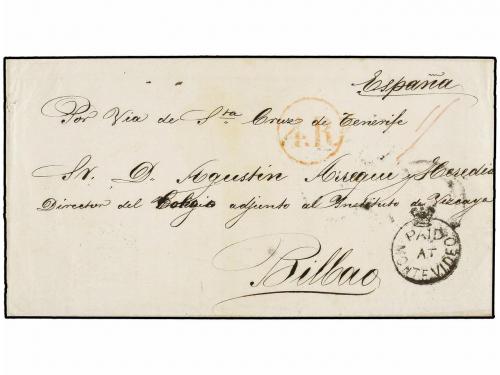 España
Por Via de Sta Cruz de Tenerife
4.R
Sr. D. Agustin Aregui y Heredia
Director del Colegio adjunto al Instituto de Vizcaya
PAID
AT
MONTEVIDEO
Bilbao